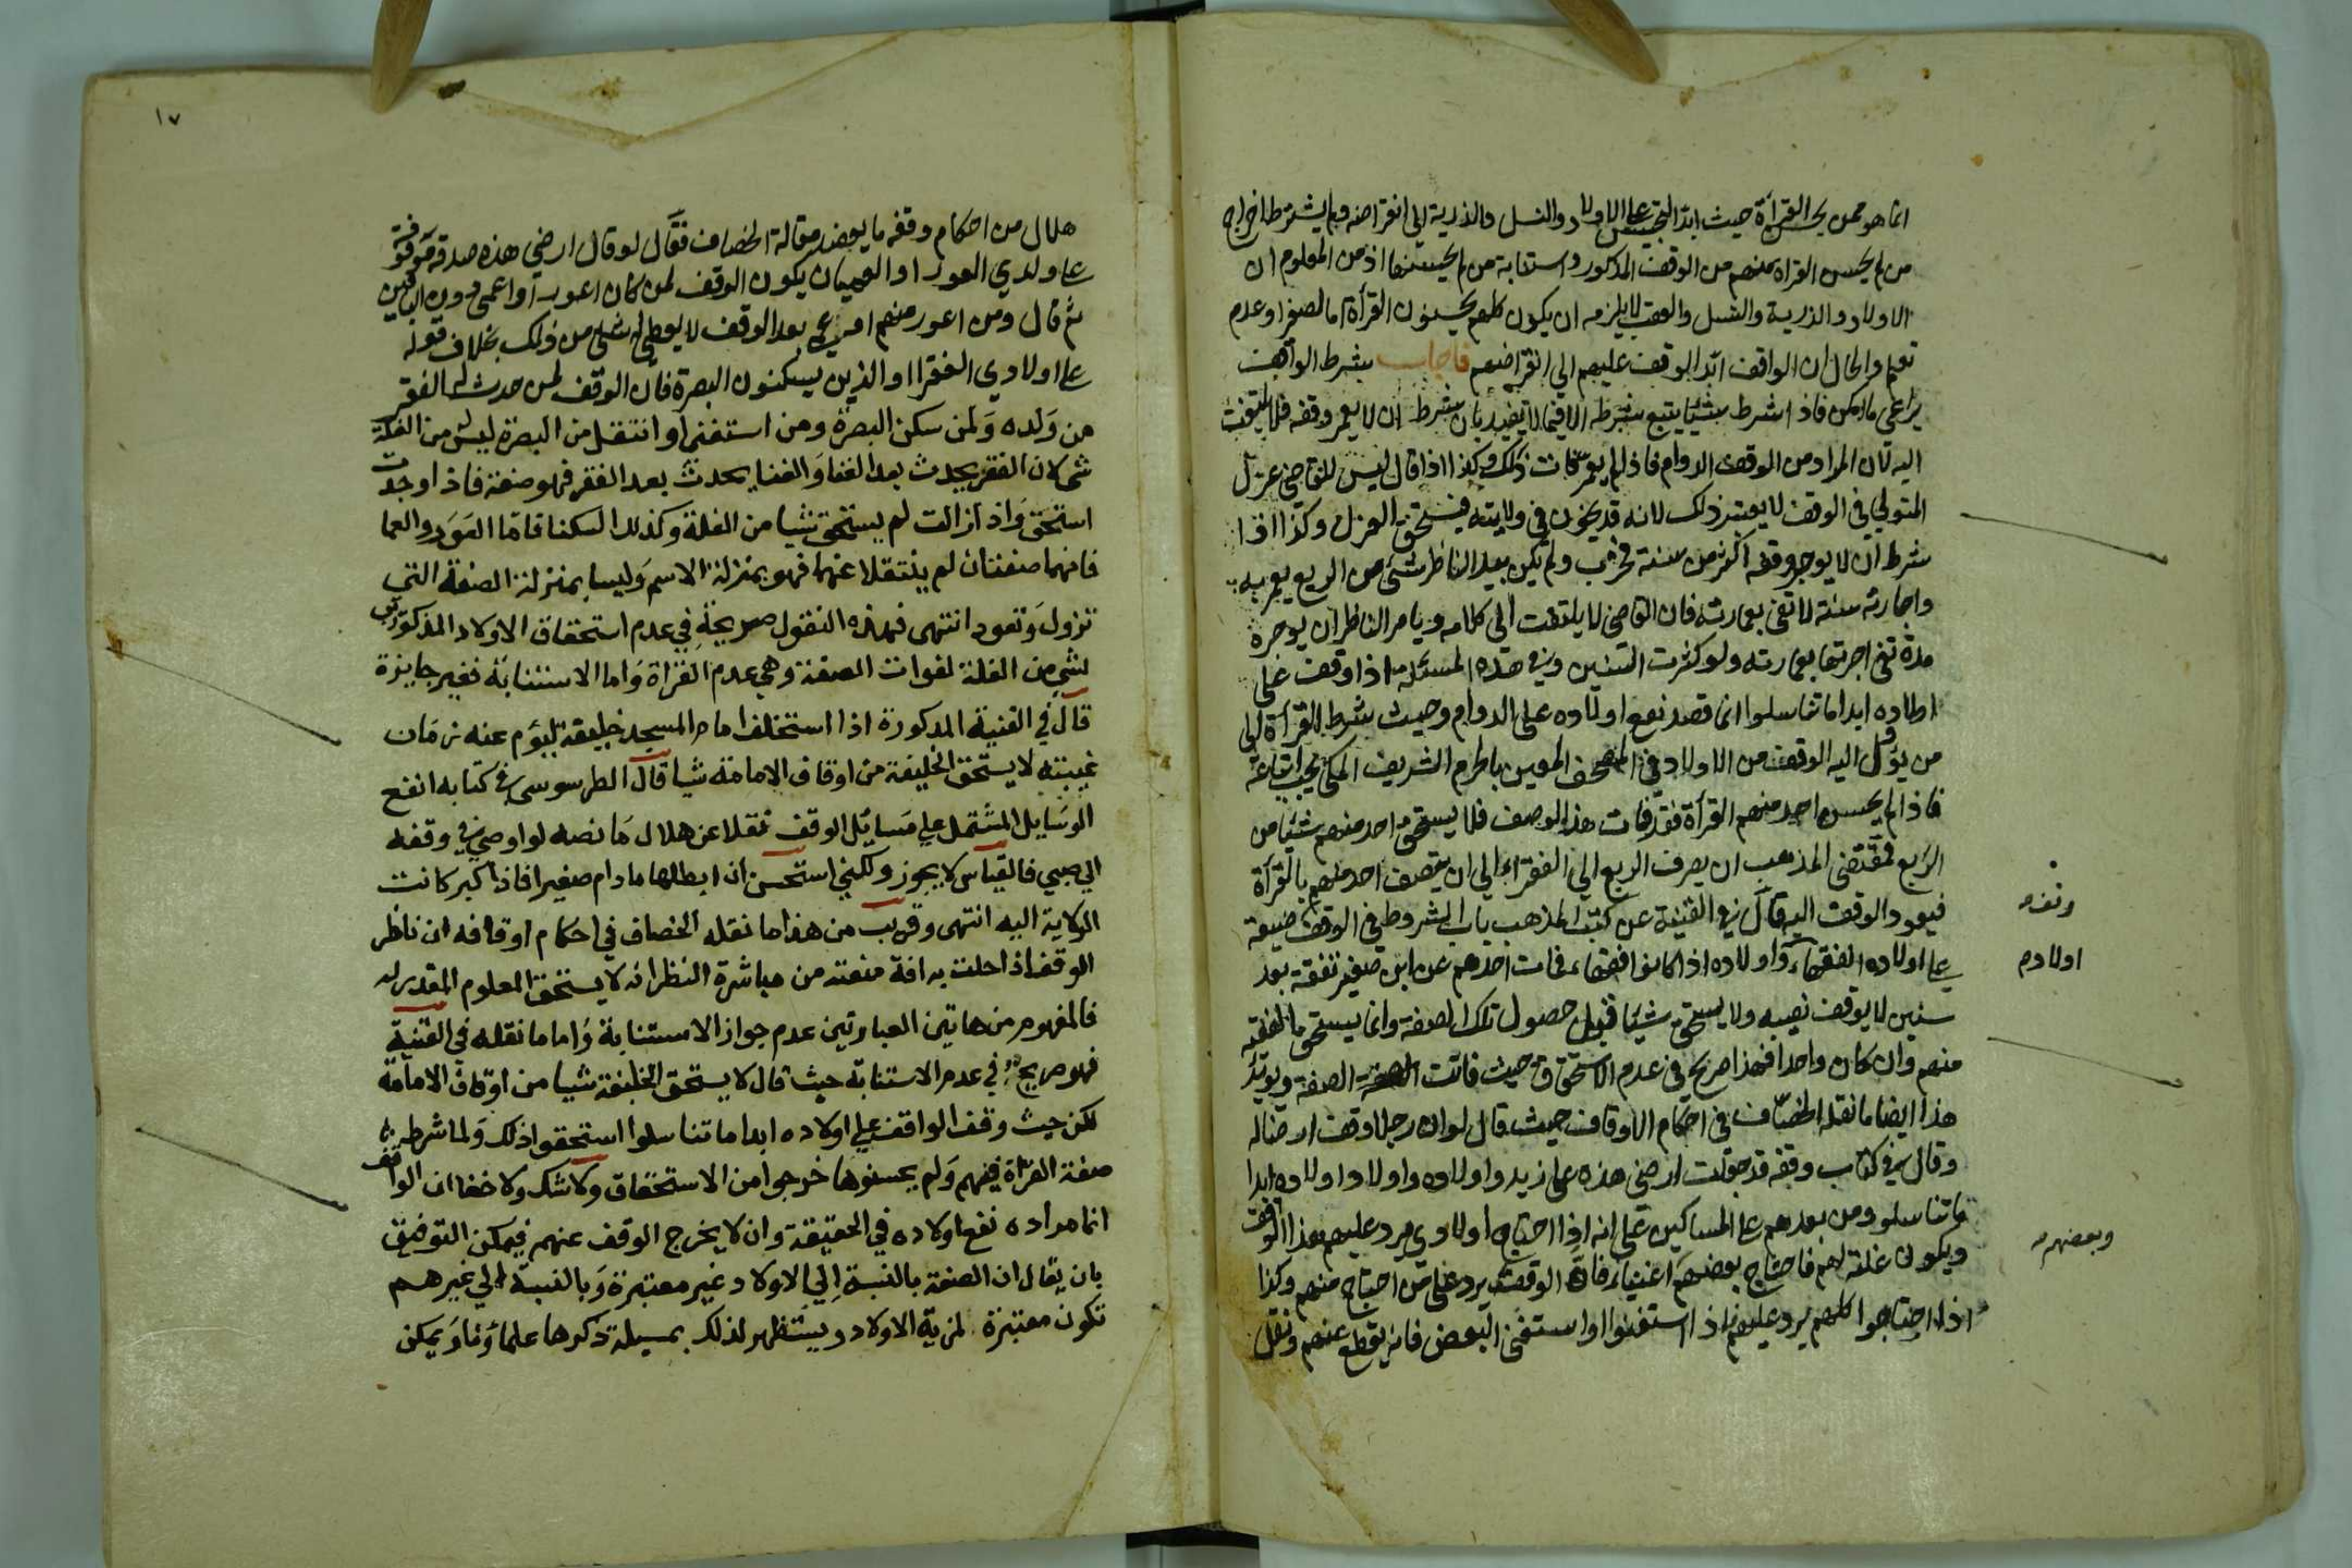 انما هو ممن يحسن القراة حيث ابد التحبيس على الاولاد والنسل والذرية الى انقراضه ولم يشترط اخراج
من لم يحسن القراة منهم من الوقف المذكور واستنابة من لم يحسنها اذ من المعلوم ان
الاولاد والذرية والنسل والعقب لا يلزم ان يكون كلهم يحسنون القرأة اما لصغر او عدم
تعلم والحال ان الواقف ابد الوقف عليهم الى انقراضهم فاجاب شرط الواقف
يراعى ما امكن فاذا شرط شيئا يتبع شرطه الا فيما لا يفيد بان شرط ان لا يعمر وقفه فلا يلتفت
اليه لان المراد من الوقف الدوام فاذا لم يعمر فات ذلك وكذا اذا قال ليس للقاضي عزل
المتولي في الوقف لا يعتبر ذلك لانه قد يخون في ولايته فيستحق العزل وكذا اذا
شرط ان لا يوجر وقفه اكثر من سنة فخرب ولم يكن بيد الناظر شئ من الريع يعمر به
واجارته سنة لا تفي بعمارته فان القاضي لا يلتفت الى كلامه ويامر الناظر ان يوجره
مدة تفي اجرتها بعمارته ولو كثرت السنين وفي هذه المسئلة اذا وقف على
اولاده ابدا ما تناسلوا انما قصد نفع اولاده على الدوام وحيث شرط القرأة لى
من يؤل اليه الوقف من الاولاد في المصحف المعين بالحرم الشريف المكي يجب اتباعه
فاذا لم يحسن احد منهم القرأة فقد فات هذا الوصف فلا يستحق احد منهم شيئا من
الريع فمقتضى المذهب ان يصرف الريع الي الفقراء الي ان يتصف احد منهم بالقرأة
فيعود الوقف اليه قال في القنية عن كتب المذهب باب الشروط في الوقف ضيعة
على اولاده الفقهاء واولاده اذا كانوا فقهاء فمات احدهم عن ابن صغير تفقه بعد
سنين لا يوقف نصيبه ولا يستحق شيئا قبل حصول تلك الصفة وانما يستحق ما الفقه
منهم وان كان واحدا فهذا صريح في عدم الاستحقاق حيث فاتت الصفة ويويد
هذا ايضا ما نقله الخصاف في احكام الاوقاف حيث قال لو ان رجلا وقف ارضا له
وقال في كتاب وقفه قد جعلت ارضى هذه على زيد واولاده واولاد اولاده ابدا
ما تناسلو ومن بعدهم على المساكين على انه اذا احتاج اولادي يرد عليهم هذا الوقف
ويكون غلته لهم فاحتاج بعضهم اغنياء فان الوقف يرد على من احتاج منهم وكذا
اذا احتاجوا كلهم يرد عليهم فاذا استغنوا او استغنى البعض فانه يقطع عنهم ونقل
اولادم
وبعضهم
١٧
هلال من احكام وقفه ما يعضد مقالة الخصاف فقال لو قال ارضي هذه صدقة موقوفة
على ولدي العور او العميان يكون الوقف لمن كان اعور او اعمى دون الباقين
ثم قال ومن اعور منهم او عمي بعد الوقف لا يعطى له شئ من ذلك بخلاف قوله
على اولادي الفقرا او الذين يسكنون البصرة فان الوقف لمن حدث له الفقر
من ولده ولمن سكن البصرة ومن استغنى او انتقل من البصرة ليس من الغلة
شئ لان الفقر يحدث بعد الغنا والغنا يحدث بعد الفقر فهو صفة فاذا وجدت
استحق واذا زالت لم يستحق شيا من الغلة وكذلك السكنا فاما العور والعما
فانهما صفتان لم ينتقلا عنهما فهو بمنزلة الاسم وليسا بمنزلة الصفة التي
تزول وتعود انتهى فهذه النقول صريحة في عدم استحقاق الاولاد المذكورين
لشئ من الغلة لفوات الصفة وهي عدم القراة واما الاستنابة فغير جايزة
قال في القنية المذكورة اذا استخلف امام المسجد خليفة ليؤم عنه زمان
غيبته لا يستحق الخليفة من اوقاف الامامة شيا قال الطرسوسي في كتابه انفع
الوسايل المشتمل على مسائل الوقف نقلا عن هلال ما نصه لو اوصي في وقفه
الي صبي فالقياس لا يجوز ولكني استحسن ان ابطلها ما دام صغيرا فاذا كبر كانت
الولاية اليه انتهى وقريب من هذا ما نقله الخصاف في احكام اوقافه ان ناظر
الوقف اذا حلت به افة منعته من مباشرة النظر انه لا يستحق المعلوم المقدر له
فالمفهوم من هاتين العبارتين عدم جواز الاستنابة واما ما نقله في القنية
فهو صريح في عدم الاستنابة حيث قال لا يستحق الخليفة شيا من اوقاف الامامة
لكن حيث وقف الواقف على اولاده ابدا ما تناسلوا استحقوا ذلك ولما شرط
صفة القراة فيهم ولم يحسنوها خرجوا من الاستحقاق ولا شك ولا خفا ان الواقف
انما مراده نفع اولاده في الحقيقة وان لا يخرج الوقف عنهم فيمكن التوفيق
بان يقال ان الصفة بالنسبة الي الاولاد غير معتبرة وبالنسبة الي غيرهم
تكون معتبرة لمزية الاولاد ويستظهر لذلك بمسيلة ذكرها علماؤنا ويمكن